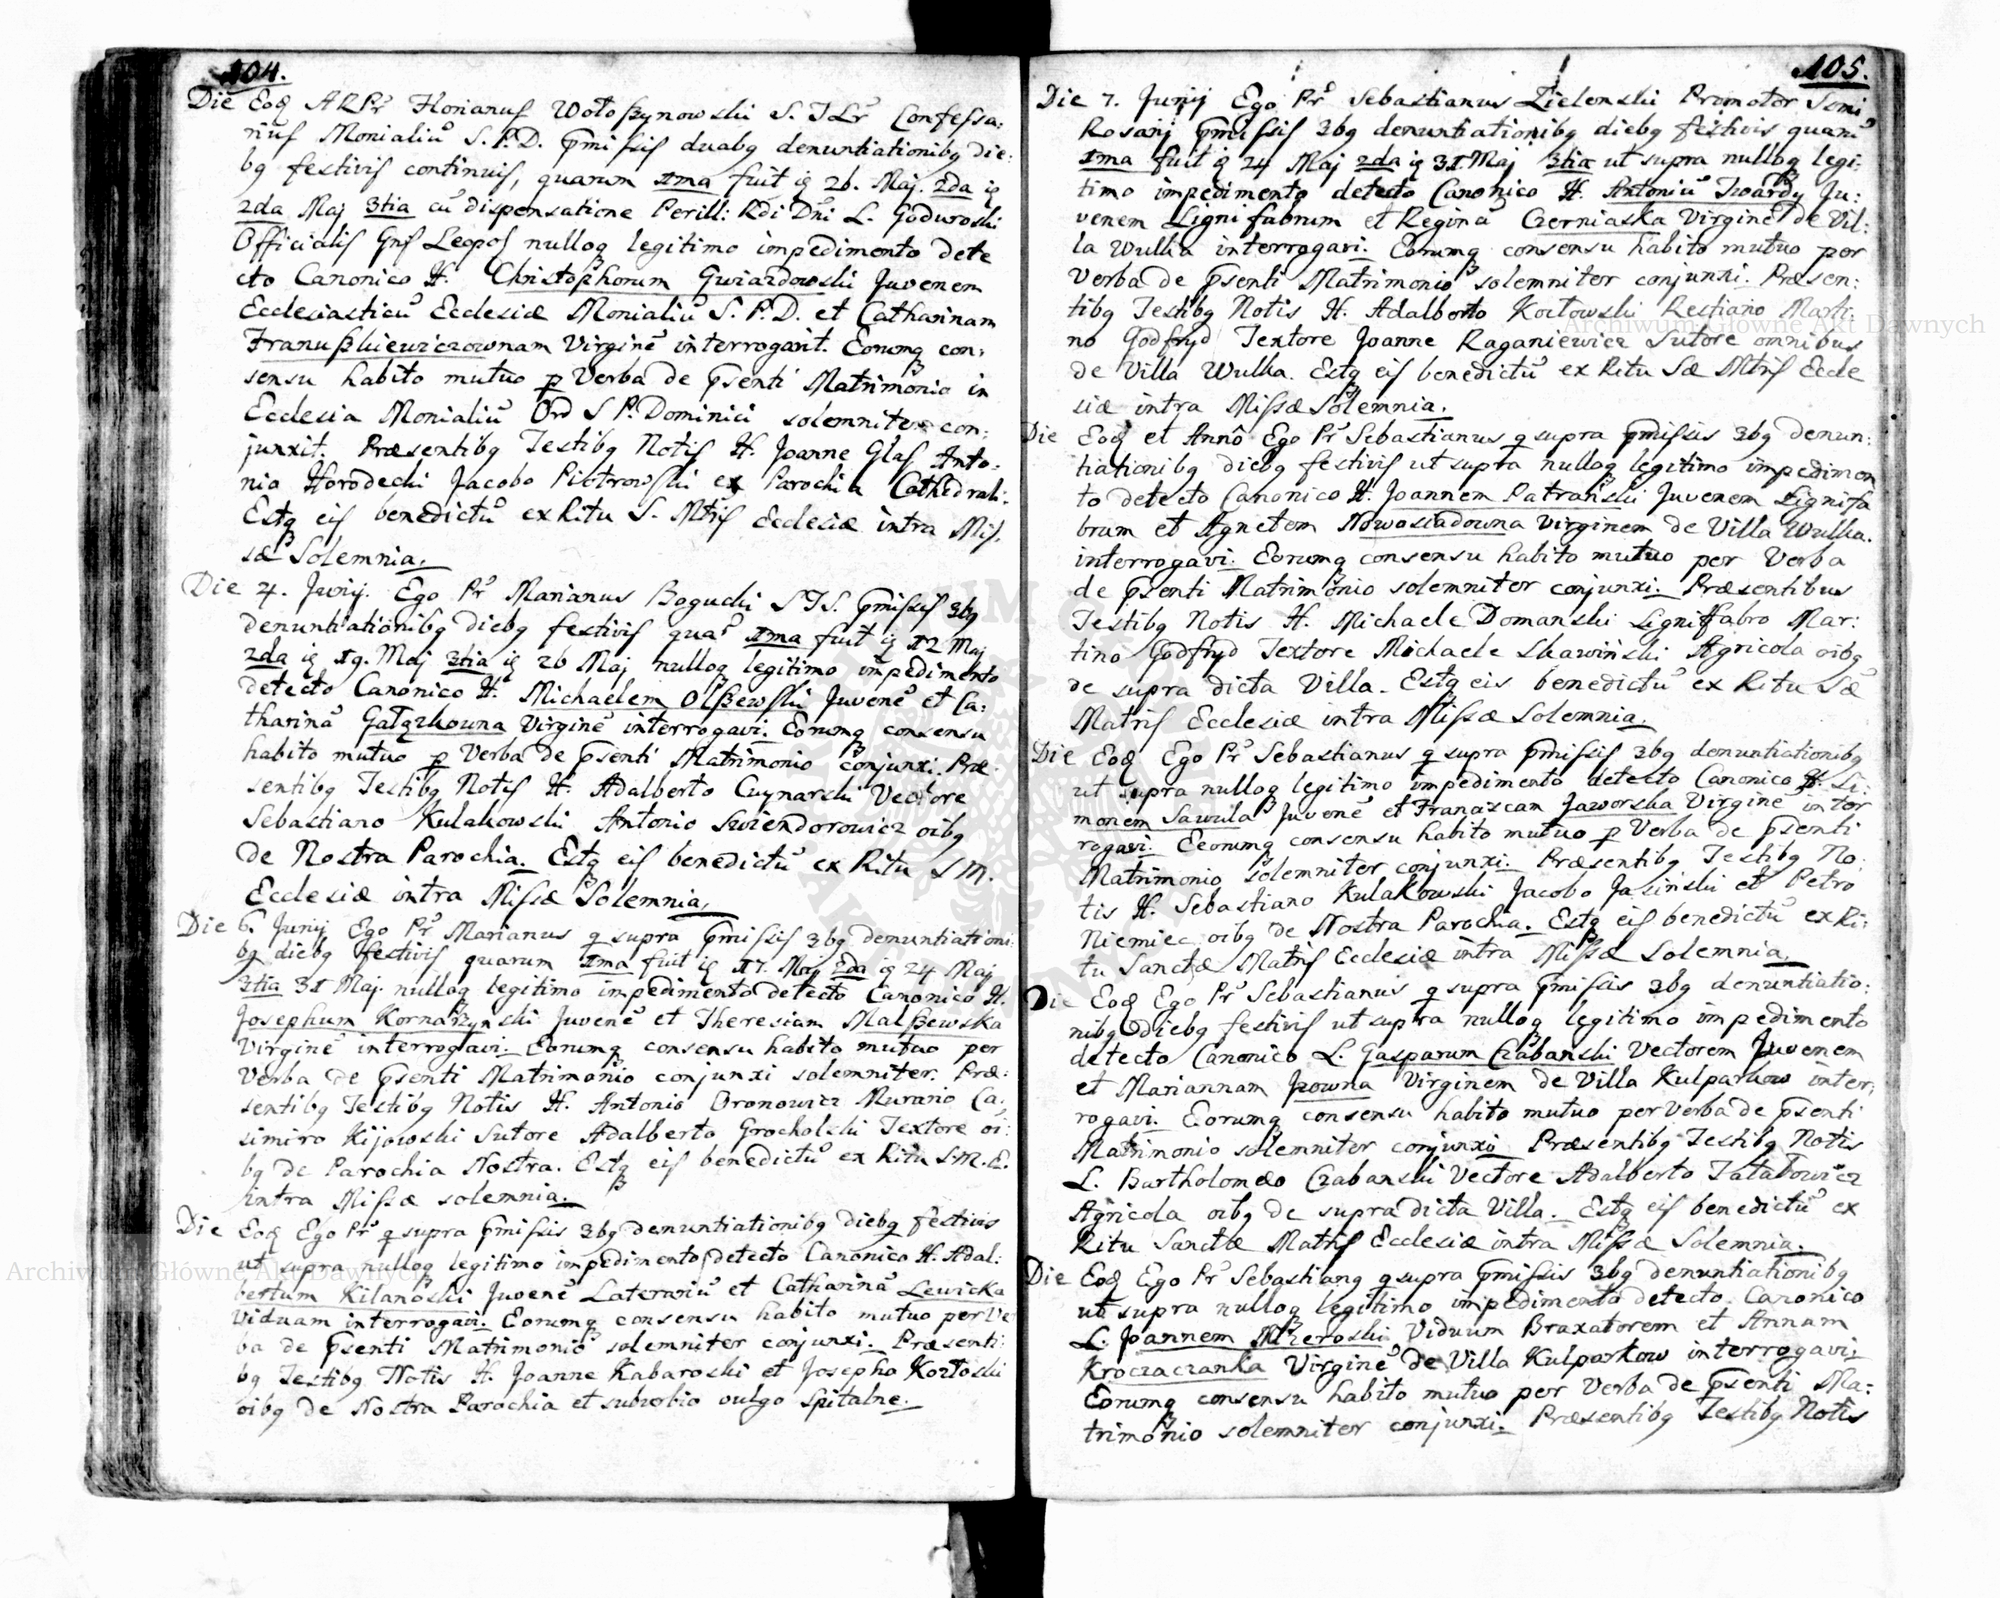 104.
Die Eoq ARPr Florianus Wołoszynowski S. T. Lr Confessa:
rius Monialiū S. P. D. pmissis duabq denuntiationibq die:
bq festivis continuis, quarum 1ma fuit iq 26. Maj. 2da iq
2da Maj 3tia cū dispensatione Perill: Rdi Dni L. Godurowski
Officialis Gnſ Leopoſ nulloq legitimo impedimento dete
cto Canonico H. Christophorum Gwiazdowski Juvenem
Ecclesiasticū Ecclesiæ Monialiū S. P. D. et Catharinam
Franuszkiewiczownam Virginē interrogavit. Eorumq con:
sensu habito mutuo p Verba de psenti Matrimonio in
Ecclesia Monialiū Ord S P. Dominici solemniter con:
junxit. Præsentibq Testibq Notis H. Joanne Glaſ Anto:
nio Horodecki Jacobo Piotrowski ex Parochia Cathedrali.
Estq eis benedictū ex Ritu S. Mtris Ecclesiæ intra Mis:
sæ Solemnia.
Die 4. Junij. Ego Pr Marianus Bogucki STS. pmissis 3bq
denuntiationibq diebq festivis quaʳ 1ma fuit iq 12 Maj
2da iq 19. Maj 3tia iq 26 Maj nulloq legitimo impedimento
detecto Canonico H. Michaelem Olszewski Juvenē et Ca:
tharinā Gałązkowna Virginē interrogavi. Eorumq consensu
habito mutuo p Verba de psenti Matrimonio conjunxi. Præ
sentibq Testibq Notis H. Adalberto Cuynarski Vectore
Sebastiano Kulakowski Antonio Swiendorowicz oibq
de Nostra Parochia. Estq eis benedictū ex Ritu S M.
Ecclesiæ intra Missæ Solemnia.
Die 6. Junij Ego Pr Marianus q supra pmissis 3bq denuntiationi
bq diebq festivis quarum 1ma fuit iq 17. Maj 2da iq 24 Maj
3tia 31 Maj. nulloq legitimo impedimento detecto Canonico H.
Josephum Kornaszynski Juvenē et Theresiam Malszewska
Virginē interrogavi. Eorumq consensu habito mutuo per
Verba de psenti Matrimonio conjunxi solemniter. Præ:
sentibq Testibq Notis H. Antonio Dronowicz Murario Ca:
simiro Kijowski Sutore Adalberto Grocholski Textore oi:
bq de Parochia Nostra. Estq eis benedictū ex Ritu S.M.E.
intra Missæ solemnia.
Die Eoq Ego Pr q supra pmissis 3bq denuntiationibq diebq festivis
ut supra nulloq legitimo impedimento detecto Canonico H. Adal:
bertum Kilanoski Juvenē Laterariū et Catharinā Lewicka
Viduam interrogavi. Eorumq consensu habito mutuo per Ve
ba de psenti Matrimonio solemniter conjunxi. Præsenti:
bq Testibq Notis H. Joanne Kabaroski et Josepho Kozłoski
oibq de Nostra Parochia et suburbio vulgo Spitalne.
105.
Die 7. Junij Ego Pr Sebastianus Zielenski Promotor Ssmi
Rosarij pmissis 3bq denuntiationibq diebq festivis quarū
1ma fuit iq 24 Maj 2da iq 31 Maj 3tia ut supra nulloq legi:
timo impedimento detecto Canonico H. Antoniū Twardy Ju:
venem Lignifabrum et Reginā Czerniaska Virginē de Vil:
la Wulka interrogavi. Eorumq consensu habito mutuo per
Verba de psenti Matrimonio solemniter conjunxi. Præsen:
tibq Testibq Notis H. Adalberto Kozłowski Restiario Marti:
no Godfryd Textore Joanne Raganiewicz Sutore omnibus
de Villa Wulka. Estq eis benedictū ex Ritu Sæ Mtris Eccle
siæ intra Missæ Solemnia.
Die Eoq et Anno Ego Pr Sebastianus q supra pmissis 3bq denun:
tiationibq diebq festivis ut supra nulloq legitimo impedimen
to detecto Canonico H. Joannem Patrański Juvenem Lignifa
brum et Agnetem Nowosiadowna Virginem de Villa Wulka.
interrogavi. Eorumq consensu habito mutuo per Verba
de psenti Matrimonio solemniter conjunxi. Præsentibus
Testibq Notis H. Michaele Domanski Lignifabro Mar:
tino Godfryd Textore Michaele Skawiński Agricola oibq
de supra dicta Villa. Estq eis benedictū ex Ritu Sæ
Matris Ecclesiæ intra Missæ Solemnia.
Die Eoq Ego Pr Sebastianus q supra pmissis 3bq denuntiationibq
ut supra nulloq legitimo impedimento detecto Canonico H. Si:
monem Sawula Juvenē et Franazcam Jaworska Virginē inter
rogavi. Eeorumq consensu habito mutuo p Verba de psenti
Matrimonio solemniter conjunxi. Præsentibq Testibq No:
tis H. Sebastiano Kulakowski Jacobo Jasinski et Petro
Niemiec oibq de Nostra Parochia. Estq eis benedictū ex Ri:
tu Sanctæ Matris Ecclesiæ intra Missæ Solemnia.
Die Eoq Ego Pr Sebastianus q supra pmissis 3bq denuntiatio:
nibq diebq festivis ut supra nulloq legitimo impedimento
detecto Canonico L. Gasparum Czabanski Vectorem Juvenem
et Mariannam Jzowna Virginem de Villa Kulparkow inter:
rogavi. Eorumq consensu habito mutuo per Verba de psenti
Matrimonio solemniter conjunxi Præsentibq Testibq Notis
L. Bartholomæo Czabanski Vectore Adalberto Jatałowicz
Agricola oibq de supra dicta Villa. Estq eis benedictū ex
Ritu Sanctæ Matris Ecclesiæ intra Missæ Solemnia.
Die Eoq Ego Pr Sebastianq q supra pmissis 3bq denuntiationibq
ut supra nulloq legitimo impedimento detecto Canonico
L. Joannem Mzeroski Viduum Braxatorem et Annam
Kroczaczanka Virginē de Villa Kulparkow interrogavi.
Eorumq consensu habito mutuo per Verba de psenti Ma:
trimonio solemniter conjunxi. Præsentibq Testibq Notis
Archiwum Główne Akt Dawnych
Archiwum Główne Akt Dawnych